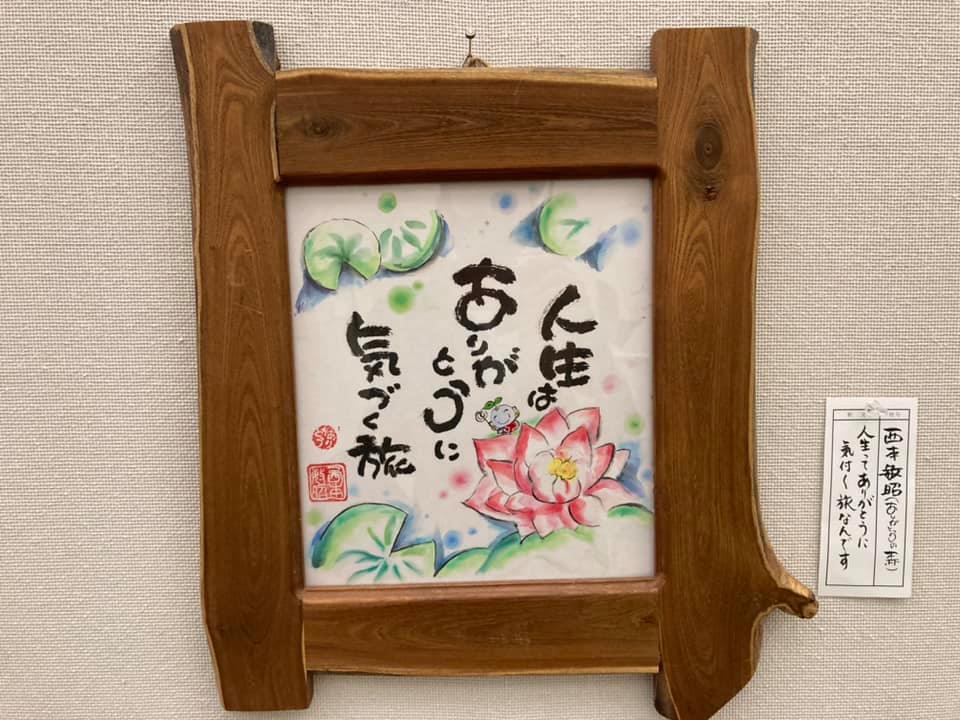 人生は
ありが
とうに
気づく旅
西本敏昭
人生ってありがとうに
気付く旅なんです